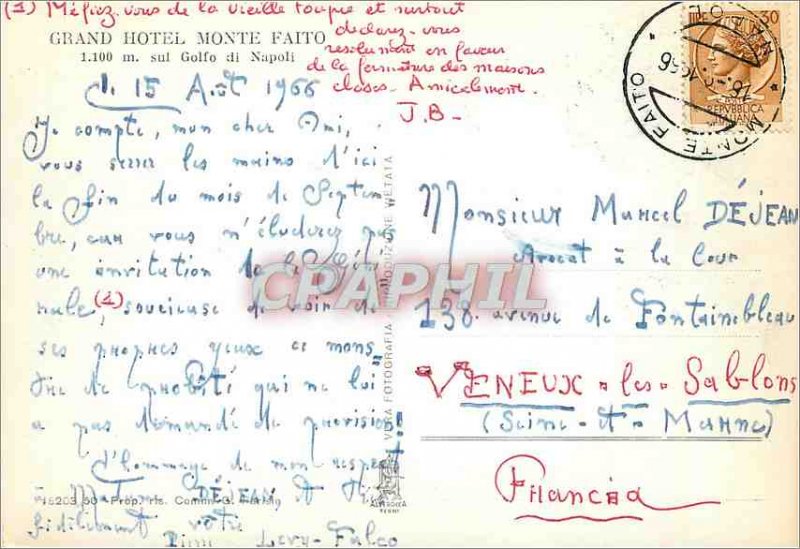 (1) Méfiez-vous de la vieille toupie et surtout
déclarez-vous
résolument en faveur
de la fermeture des maisons
closes. Amicalement.
J.B-
GRAND HOTEL MONTE FAITO
1.100 m. sul Golfo di Napoli
15 Août 1966
Je compte, mon cher Ami,
vous serrer les mains d'ici
la fin du mois de Septem
bre, car vous n'éluderez pas
une invitation de la Géni
nale, (1) soucieuse de voir de
ses propres yeux ce mons
tre de probité qui ne lui
a pas demandé de provision!
d'hommage de mon respect
à M DÉJEAN et
fidèlement vôtre
Levy-Falco
Prop. ris.
VERA FOTOGRAFIA - RIPRODUZIONE VIETATA
ALTEROCCA
TERNI
LIRE 30
REPVBBLICA
ITALIANA
MONTE FAITO
Monsieur Marcel DÉJEAN
Avocat à la Cour
138. avenue de Fontainebleau
VENEUX-les-Sablons
(Seine-et-Marne)
Francia
CPARPHIL